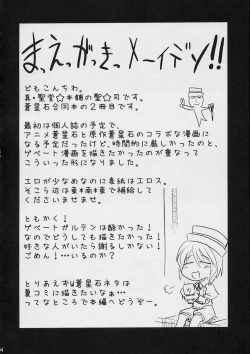 まっえっがっきっ メーイデン!!
ども☆こんちわ。
真・聖堂☆本舗の聖☆司です。
蒼星石合同本の2冊目です。
最初は個人誌の予定で、
アニメ蒼星石と原作蒼星石のコラボな漫画に
なる予定だったけど、時間的に厳しかったのと、
ゲベート漫画を描きたかったのが重なって
こういった形になりました。
エロが少なめなのに表紙はエロス。
そこら辺は東*南*東で補給して
くださいませ。
ともかく!
ゲベートガルテンは難かった!
なのでどうしても描きたかった!
好きな人がいたら謝るしかない!
ごめん!…いるの?
とりあえずW蒼星石ネタは
夏コミに描きたいなぁ…
ってなところで本編へどうぞー。